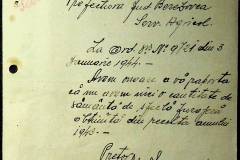 Prefectura Jud Berezovca
Serv. Agricol.
La Ord. Nº 9721 din 3
Ianuarie 1944 -
Avem onoare a vă raporta
că nu avem nici o cantitate de
sămânță de sfeclă furajeră
obținută din recolta anului
1943.-
Pretor